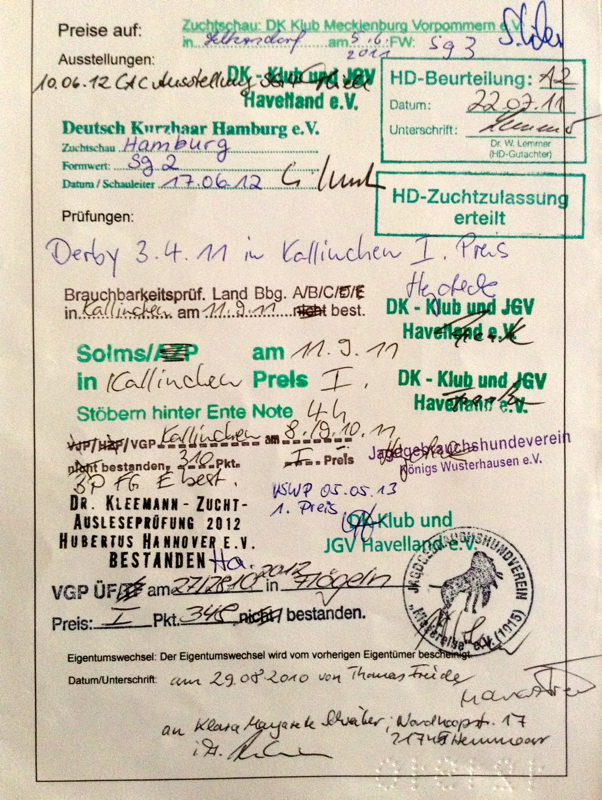 Preise auf: Zuchtschau: DK Klub Mecklenburg Vorpommern e.V.
in am 5.6. 2011 FW: sg 3
Ausstellungen:
10.06.12 CAC Ausstellung
DK - Klub und JGV
Havelland e.V.
HD-Beurteilung: A2
Datum: 22.07.11
Unterschrift:
Dr. W. Lemmer
(HD-Gutachter)
Deutsch Kurzhaar Hamburg e.V.
Zuchtschau Hamburg
Formwert: Sg 2
Datum / Schauleiter 17.06.12
HD-Zuchtzulassung
erteilt
Prüfungen:
Derby 3.4.11 in Kallinchen I. Preis
Brauchbarkeitsprüf. Land Bbg. A/B/C/D/E
in Kallinchen am 11.9.11 nicht best.
DK - Klub und JGV
Havelland e.V.
Solms/AZP am 11.9.11
in Kallinchen Preis I.
DK - Klub und JGV
Havelland e.V.
Stöbern hinter Ente Note 4h
VJP/HZP/VGP Kallinchen am 8./9.10.11
nicht bestanden 310 Pkt. I Preis
Jagdgebrauchshundeverein
Königs Wusterhausen e.V.
BP FG E best.
VSWP 05.05.13
1. Preis
DR. KLEEMANN - ZUCHT-
AUSLESEPRÜFUNG 2012
HUBERTUS HANNOVER E.V.
BESTANDEN Ha.
DK-Klub und
JGV Havelland e.V.
VGP ÜF am 27/28.10.2012 in Flögeln
Preis: I Pkt. 348 nicht bestanden.
JAGDGEBRAUCHSHUNDVEREIN
e.V. (1015)
Eigentumswechsel: Der Eigentumswechsel wird vom vorherigen Eigentümer bescheinigt.
Datum/Unterschrift: am 29.08.2010 von Thomas Freide
an Klara Margarete Schreiber, Nordhoopstr. 17
21745 Hemmoor
i.A.